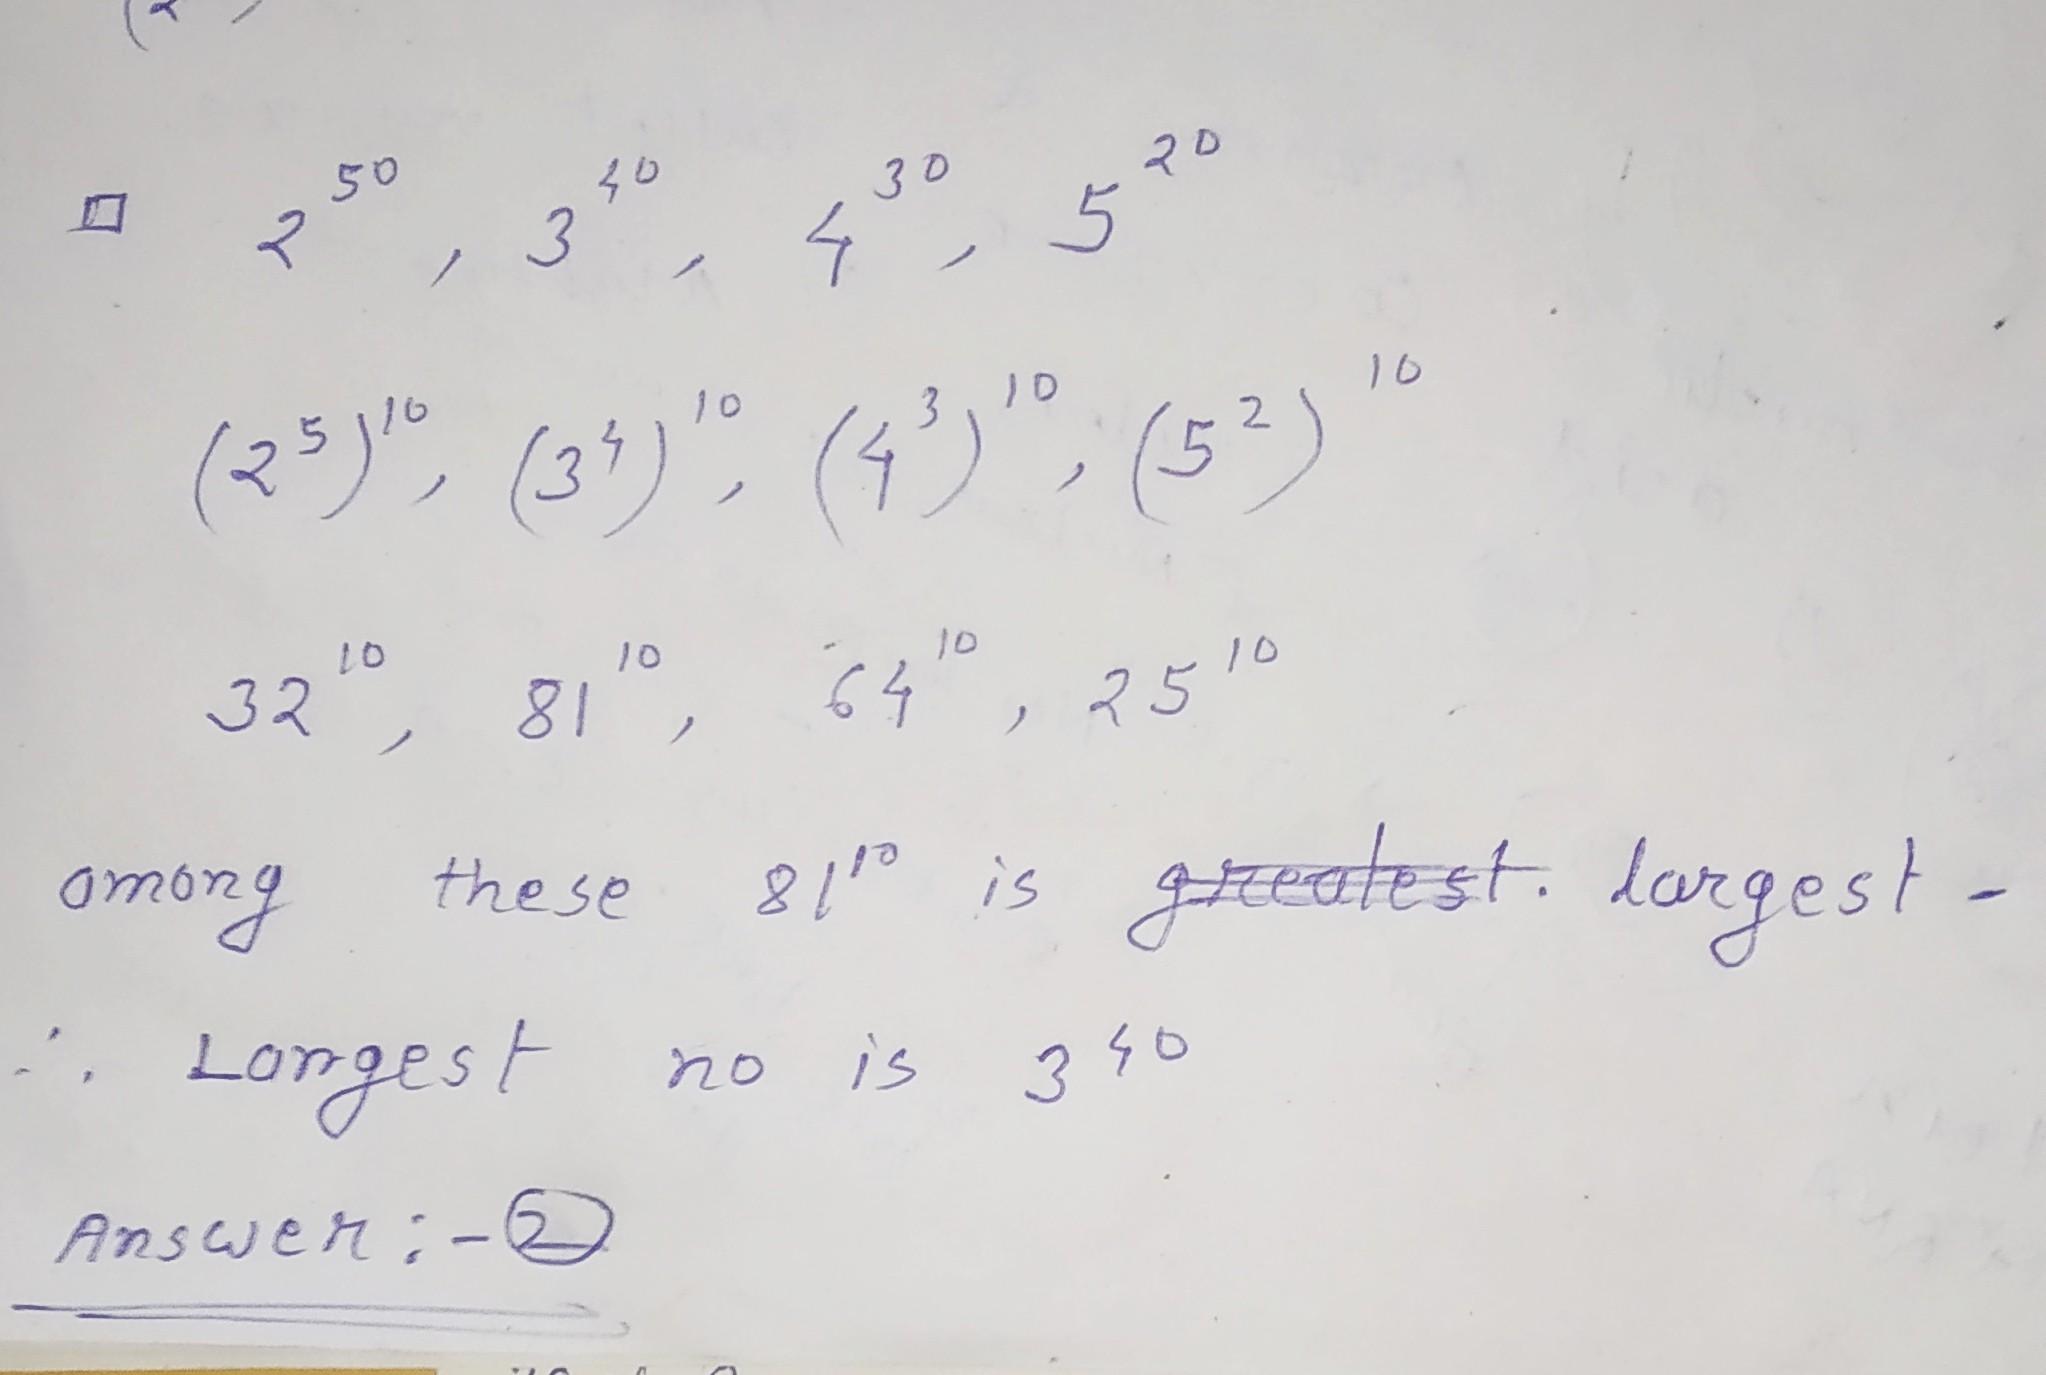 □ 2^50, 3^40, 4^30, 5^20
(2^5)^10, (3^4)^10, (4^3)^10, (5^2)^10
32^10, 81^10, 64^10, 25^10
among these 81^10 is greatest. largest -
∴ Largest no is 3^40
Answer :- ②